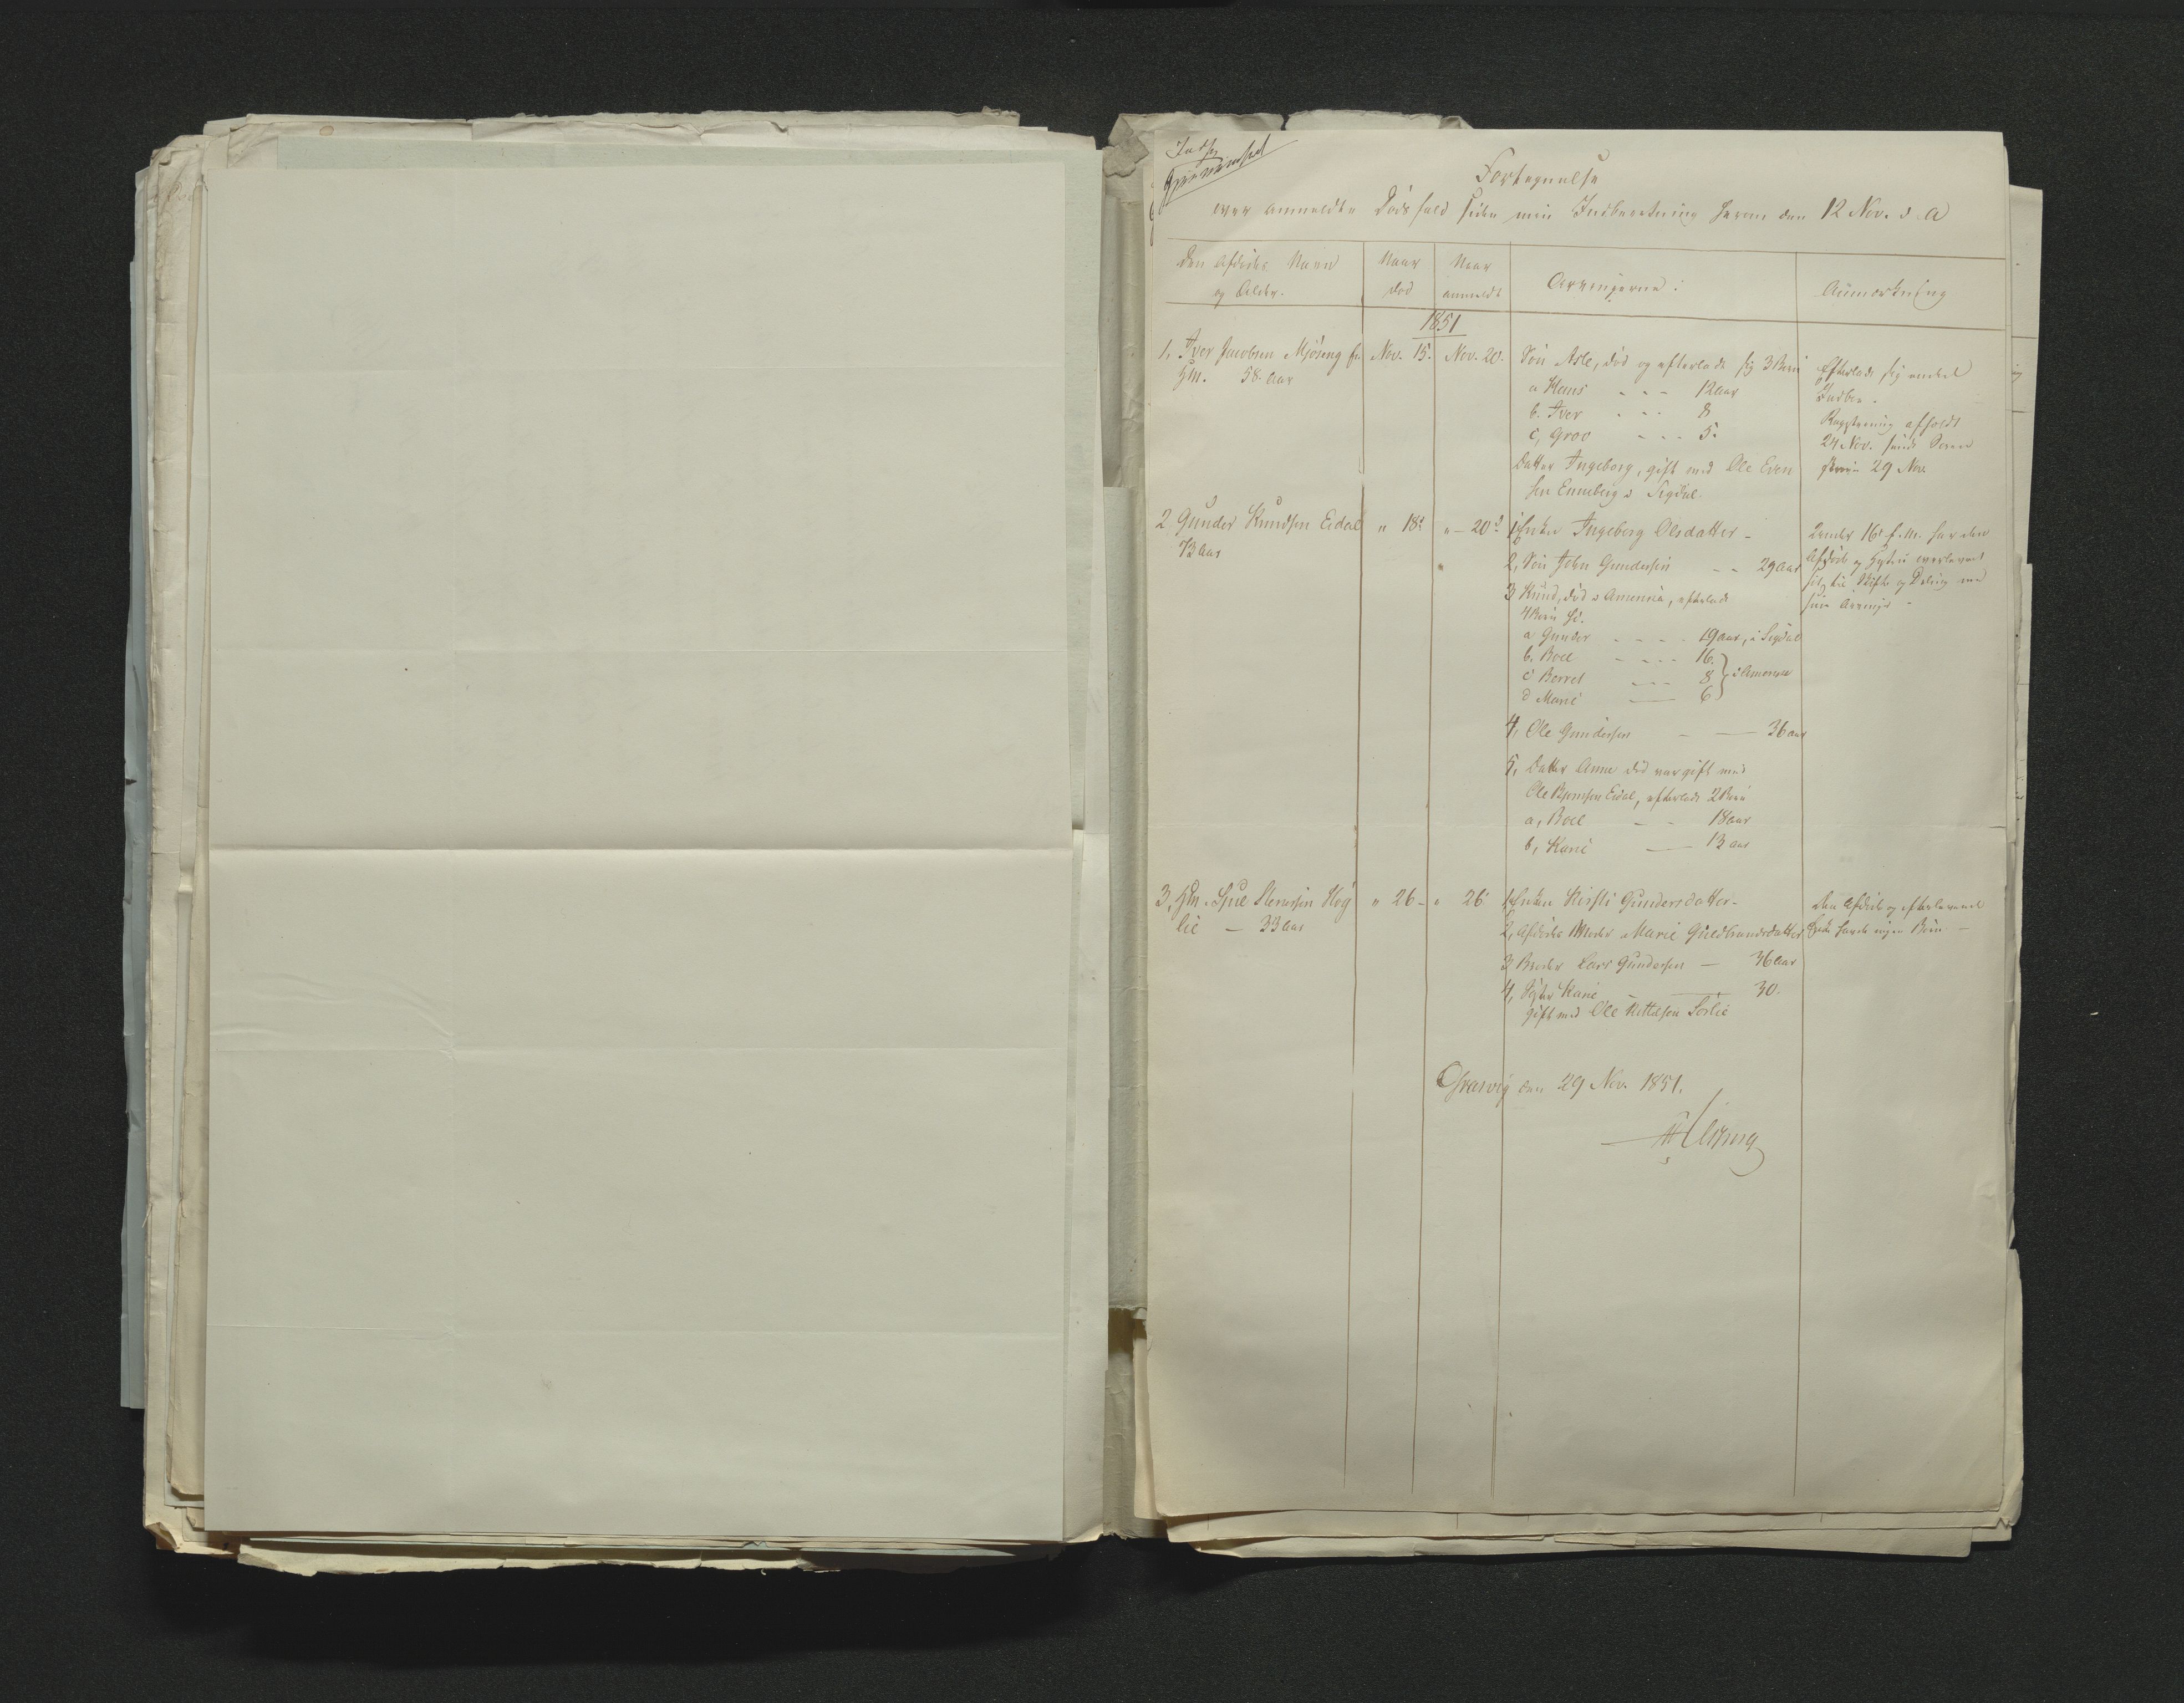 Fortegnelse
over anmeldte Dødsfald siden min Indberetning herom den 12 Nov. d. A
Den Afdødes Navn
og Alder.
Naar
død
Naar
anmeldt
Arvingerne:
Anmærkning
1851
1, Iver Jacobsen Mjöseng
58. Aar
Nov. 15.
Nov. 20.
Søn Asle, død og efterlod sig 3 Børn
a Hans - - - 12 Aar
b. Iver - - - 8
c, Groo - - - 5.
Datter Ingeborg, gift med Ole Even
sen Enneberg i Sigdal.
Efterlod sig
Registrering afholdt
24 Nov.
29 Nov.
2 Gunder Knudsen Eidal
73 Aar
" 18.
" - 20
1, Enken Ingeborg Olsdatter -
2, Søn John Gundersen - - 29 Aar
3 Knud, død i America, efterlod
4 Børn
a Gunder - - - - 19 Aar, i Sigdal
b. Boel - - - - 16.
c Berret - - - 8
d Marie — 6
i America
4, Ole Gundersen - — 36 Aar
5, Datter Anne død var gift med
Ole Bjørnsen Eidal, efterlod 2 Børn
a, Boel - - 18 Aar
b, Kari — 13 Aar
Under 16 f. M. har den
Afdøde og Hustru
til Skifte og Deling med
sine Arvinger -
3,
lie — 33 Aar
" 26 -
" 26
1, Enken Kirsti Gundersdatter -
2, Afdødes Moder Marie Guldbrandsdatter
3 Broder Lars Gundersen — 36 Aar
4, Søster Kari - — 30.
gift med Ole Kittelsen Sörlie
Den Afdøde og efterlevende
Enke havde ingen Børn. —
den 29 Nov. 1851.